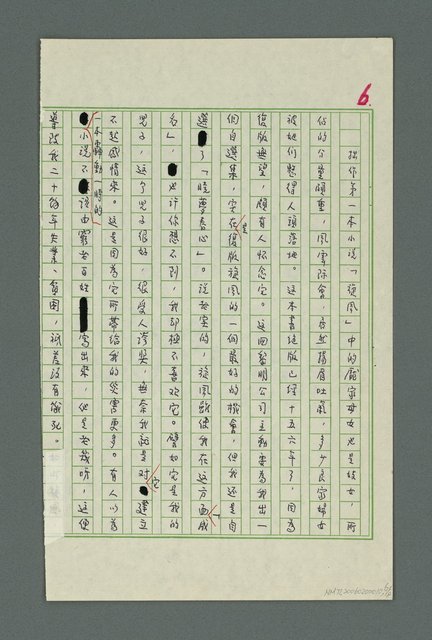 6.
拙作第一本小說「旋風」中的龐家母女也是妓女,所
佔的分量頗重,風雲際會,居然揚眉吐氣,多少良家婦女
被她們整得人頭落地。這本書絕版已經十五六年了,因為
復版無望,頗有人懷念它。這回黎明公司主動要為我出一
個自選集,實在是復版旋風的一個最好的機會,但我還是自
選了「曉夢春心」。說老實的,旋風雖使我在這方面成「
名」,也許你想不到,我卻極不喜歡它。譬如它是我的
兒子,這個兒子很好,很受人誇獎,無奈我就是對它建立
不起感情來。這是因為它所帶給我的災害更多。有人以為
一本轟動一時的
小說不該由窮老百姓寫出來,他是老幾呀,這便
導致我二十餘年失業、貧困,祇差沒有餓死。
NMTL20060200010